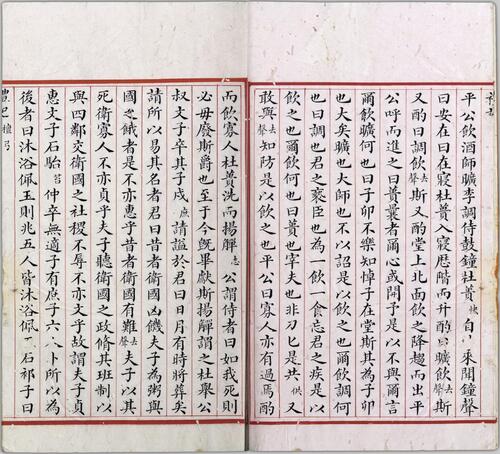 平公飲酒師曠李調侍鼓鐘杜蕢快自來聞鐘聲
曰安在曰在寢杜蕢入寢歷階而升酌曰曠飲去聲斯
又酌曰調飲去聲斯又酌堂上北面飲之降趨而出平
公呼而進之曰蕢曩者爾心或開予是以不與爾言
爾飲曠何也曰子卯不樂知悼子在堂斯其為子卯
也大矣曠也大師也不以詔是以飲之也爾飲調何
也曰調也君之褻臣也為一飲一食忘君之疾是以
飲之也爾飲何也曰蕢也宰夫也非刀匕是共供又
敢與去聲知防是以飲之也平公曰寡人亦有過焉酌
而飲寡人杜蕢洗而揚觶志公謂侍者曰如我死則
必毋廢斯爵也至于今旣畢獻斯揚觶謂之杜舉公
叔文子卒其子戍庶請謚於君曰日月有時將葬矣
請所以易其名者君曰昔者衛國凶饑夫子為粥與
國之餓者是不亦惠乎昔者衛國有難去聲夫子以其
死衛寡人不亦貞乎夫子聽衛國之政脩其班制以
與四鄰交衛國之社稷不辱不亦文乎故謂夫子貞
惠文子石駘苔仲卒無適子有庶子六人卜所以為
後者曰沐浴佩玉則兆五人皆沐浴佩石祁子曰
禮記 檀弓